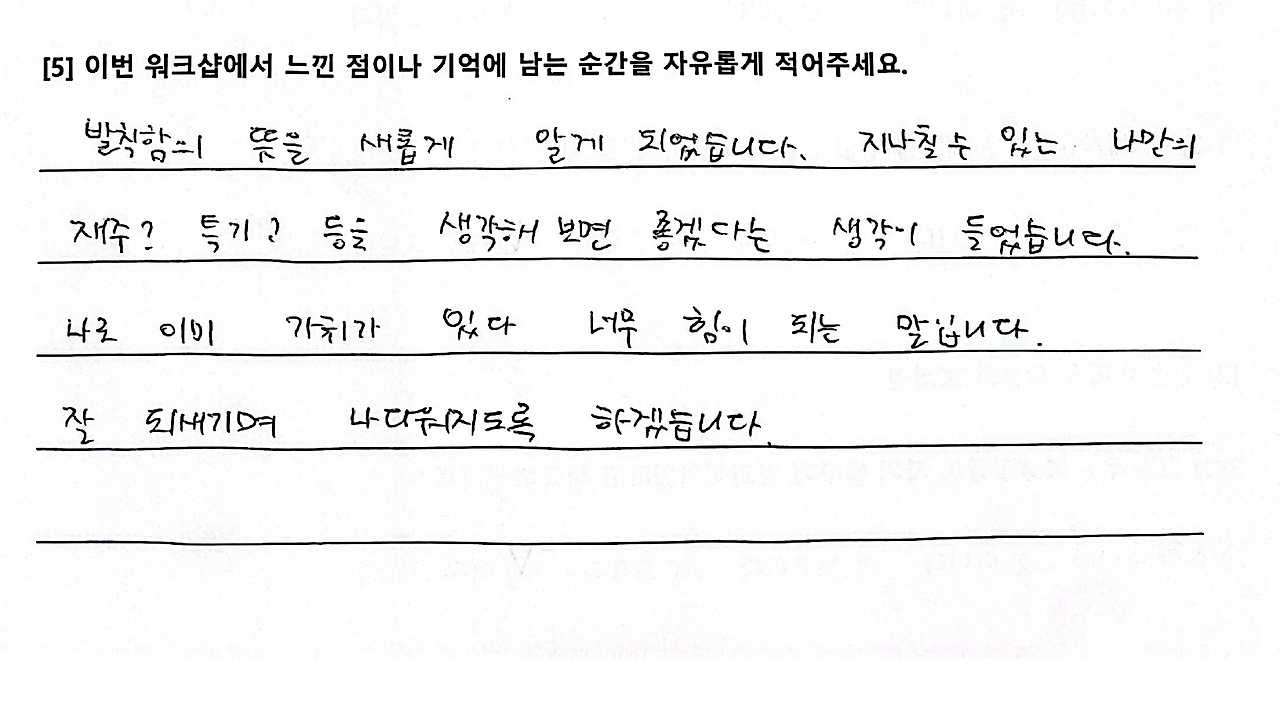 [5] 이번 워크샵에서 느낀 점이나 기억에 남는 순간을 자유롭게 적어주세요.
발칙함의 뜻을 새롭게 알게 되었습니다. 지나칠 수 있는 나만의
재주? 특기? 등을 생각해 보면 좋겠다는 생각이 들었습니다.
나로 이미 가치가 있다 너무 힘이 되는 말입니다.
잘 되새기며 나다워지도록 하겠습니다.